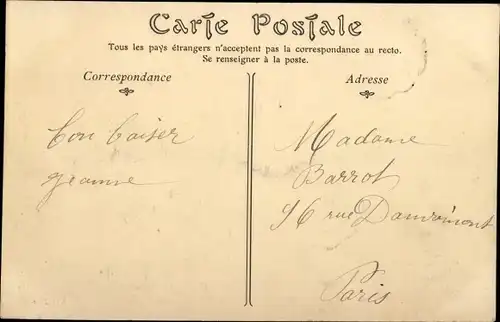 Carte Postale
Tous les pays étrangers n'acceptent pas la correspondance au recto.
Se renseigner à la poste.
Correspondance
Bon baiser
Jeanne
Adresse
Madame
Barrot
rue Damrémont
Paris